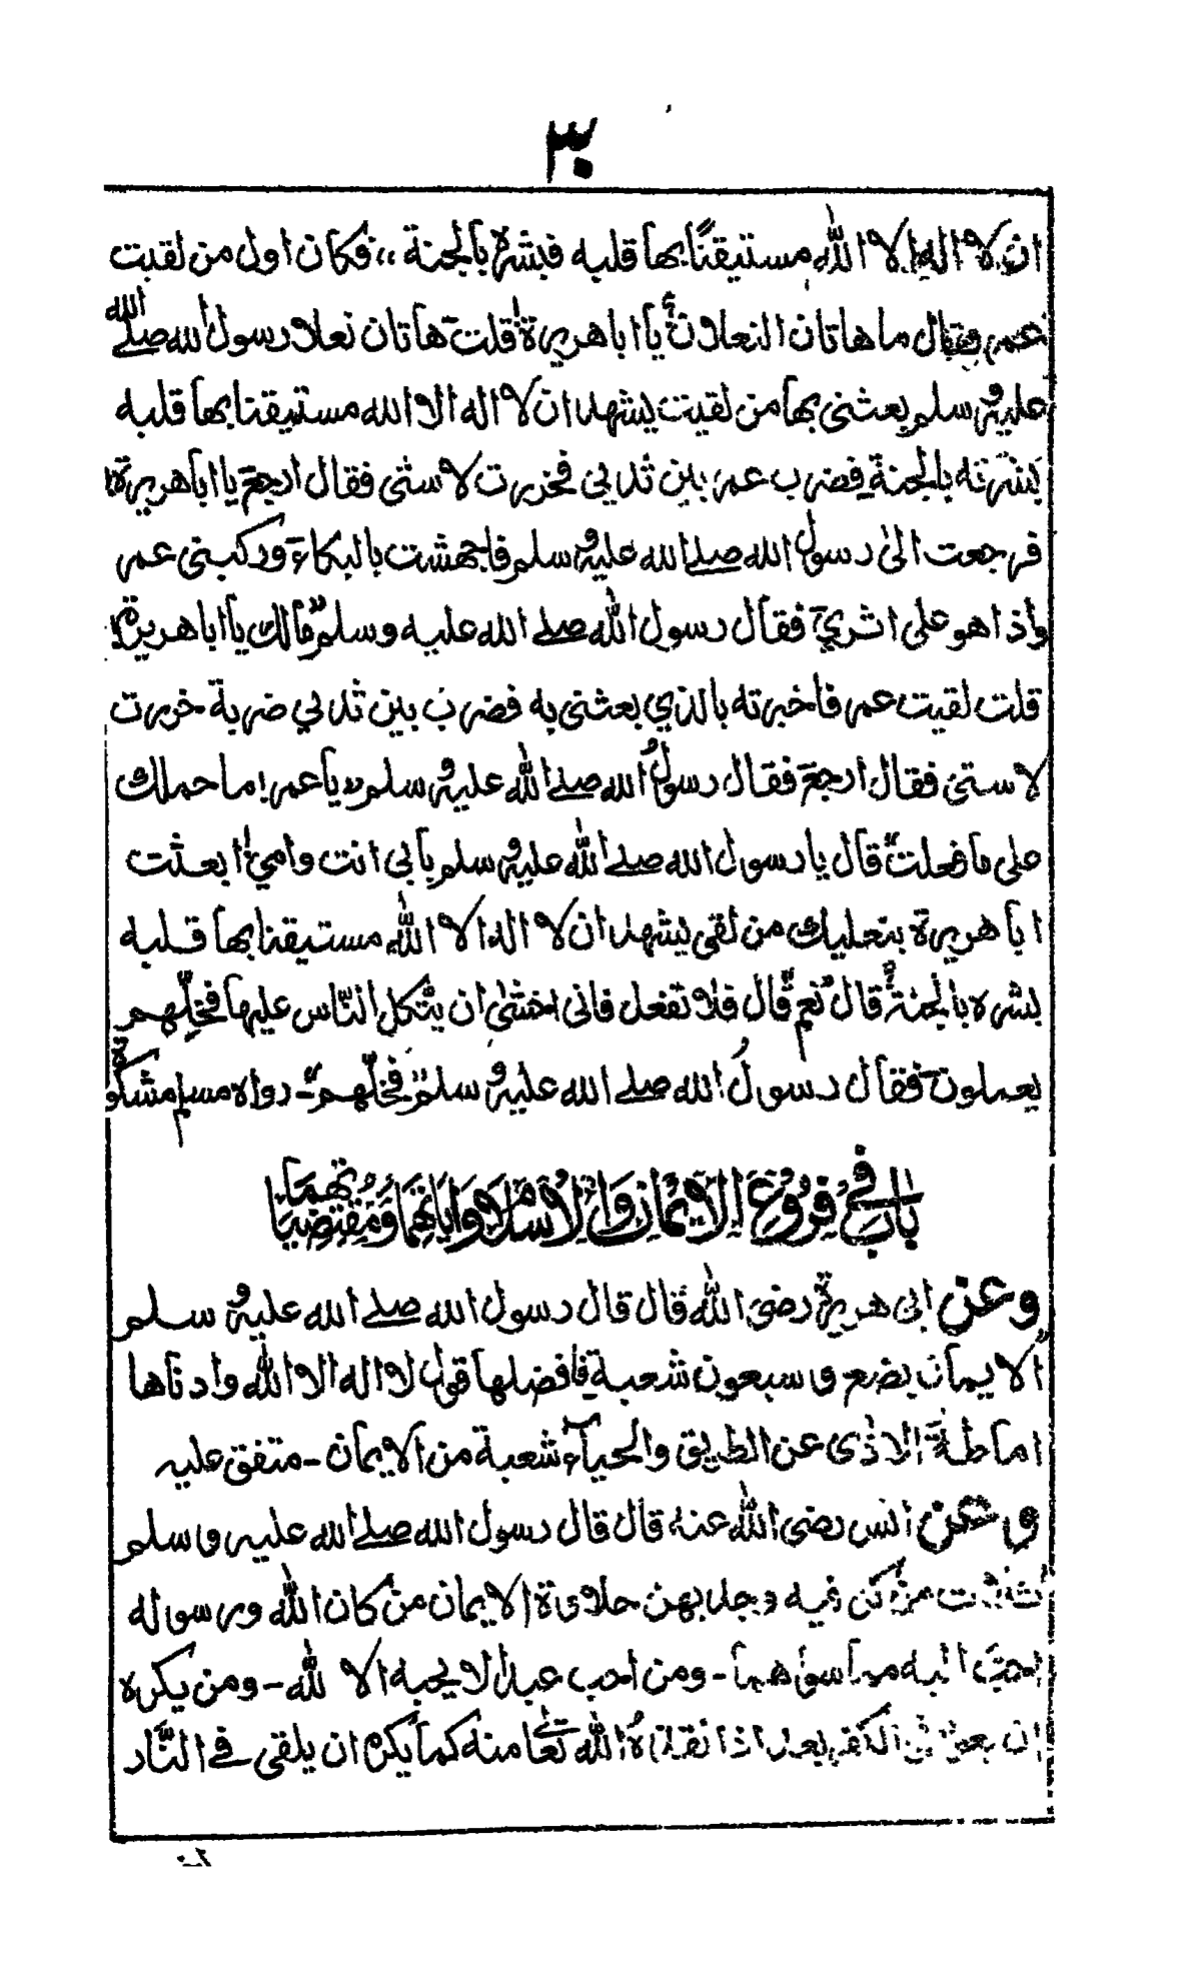 ٣٠
ان لا اله الا الله مستيقنًا بها قلبه فبشره بالجنة،، فكان اول من لقيت
عمر فقال ما هاتان النعلان يا ابا هريرة قلت هاتان نعلا رسول الله صلے الله
عليه وسلم بعثنى بهما من لقيت يشهد ان لا اله الا الله مستيقنا بها قلبه
بشرته بالجنة فضرب عمر بين ثديي فخررت لاستى فقال ارجع يا ابا هريرة
فرجعت الىٰ رسول الله صلے الله عليه وسلم فاجهشت بالبكاء وركبنى عمر
واذا هو على اثري فقال رسول الله صلے الله عليه وسلم مالك يا ابا هريرة
قلت لقيت عمر فاخبرته بالذي بعثنى به فضرب بين ثديي ضربة خررت
لاستى فقال ارجع فقال رسول الله صلے الله عليه وسلم يا عمر! ما حملك
على ما فعلت قال يا رسول الله صلے الله عليه وسلم بابى انت وامي ابعثت
ابا هريرة بنعليك من لقى يشهد ان لا اله الا الله مستيقنا بها قلبه
بشره بالجنة قال نعم قال فلا تفعل فانى اخشىٰ ان يتّكل النّاس عليها فخلّهم
يعملون فقال رسول الله صلے الله عليه وسلم فخلّهم ـ رواه مسلم مشكوة
باب فى فروع الايمان والاسلام واياتهما ومقتضياتهما
وعن ابى هريرة رضى الله قال قال رسول الله صلے الله عليه وسلم
الايمان بضع وسبعون شعبة فافضلها قول لا اله الا الله وادناها
اماطة الاذى عن الطريق والحياء شعبة من الايمان ـ متفق عليه
وعن انس رضى الله عنه قال قال رسول الله صلے الله عليه وسلم
ثلث من كن فيه وجد بهن حلاوة الايمان من كان الله ورسوله
احب اليه مما سواهما ـ ومن احب عبدا لا يحبه الا لله ـ ومن يكره
ان يعود فى الكفر بعد اذ انقذه الله تعا منه كما يكره ان يلقى فے النّار